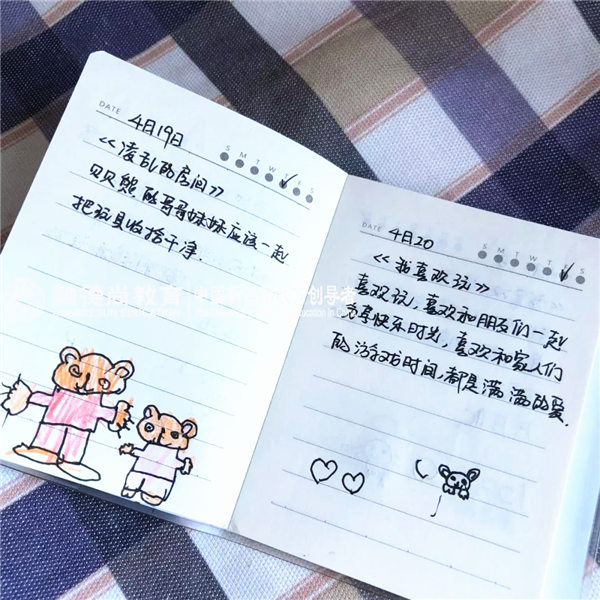 DATE 4月19日
S M T W T F S
《凌乱的房间》
贝贝熊的哥哥妹妹应该一起
把玩具收拾干净.
DATE 4月20
S M T W T F S
《我喜欢玩》
喜欢玩,喜欢和朋友们一起
分享快乐时光,喜欢和家人们
的游戏时间,都是满满的爱.
德尚教育
创导者